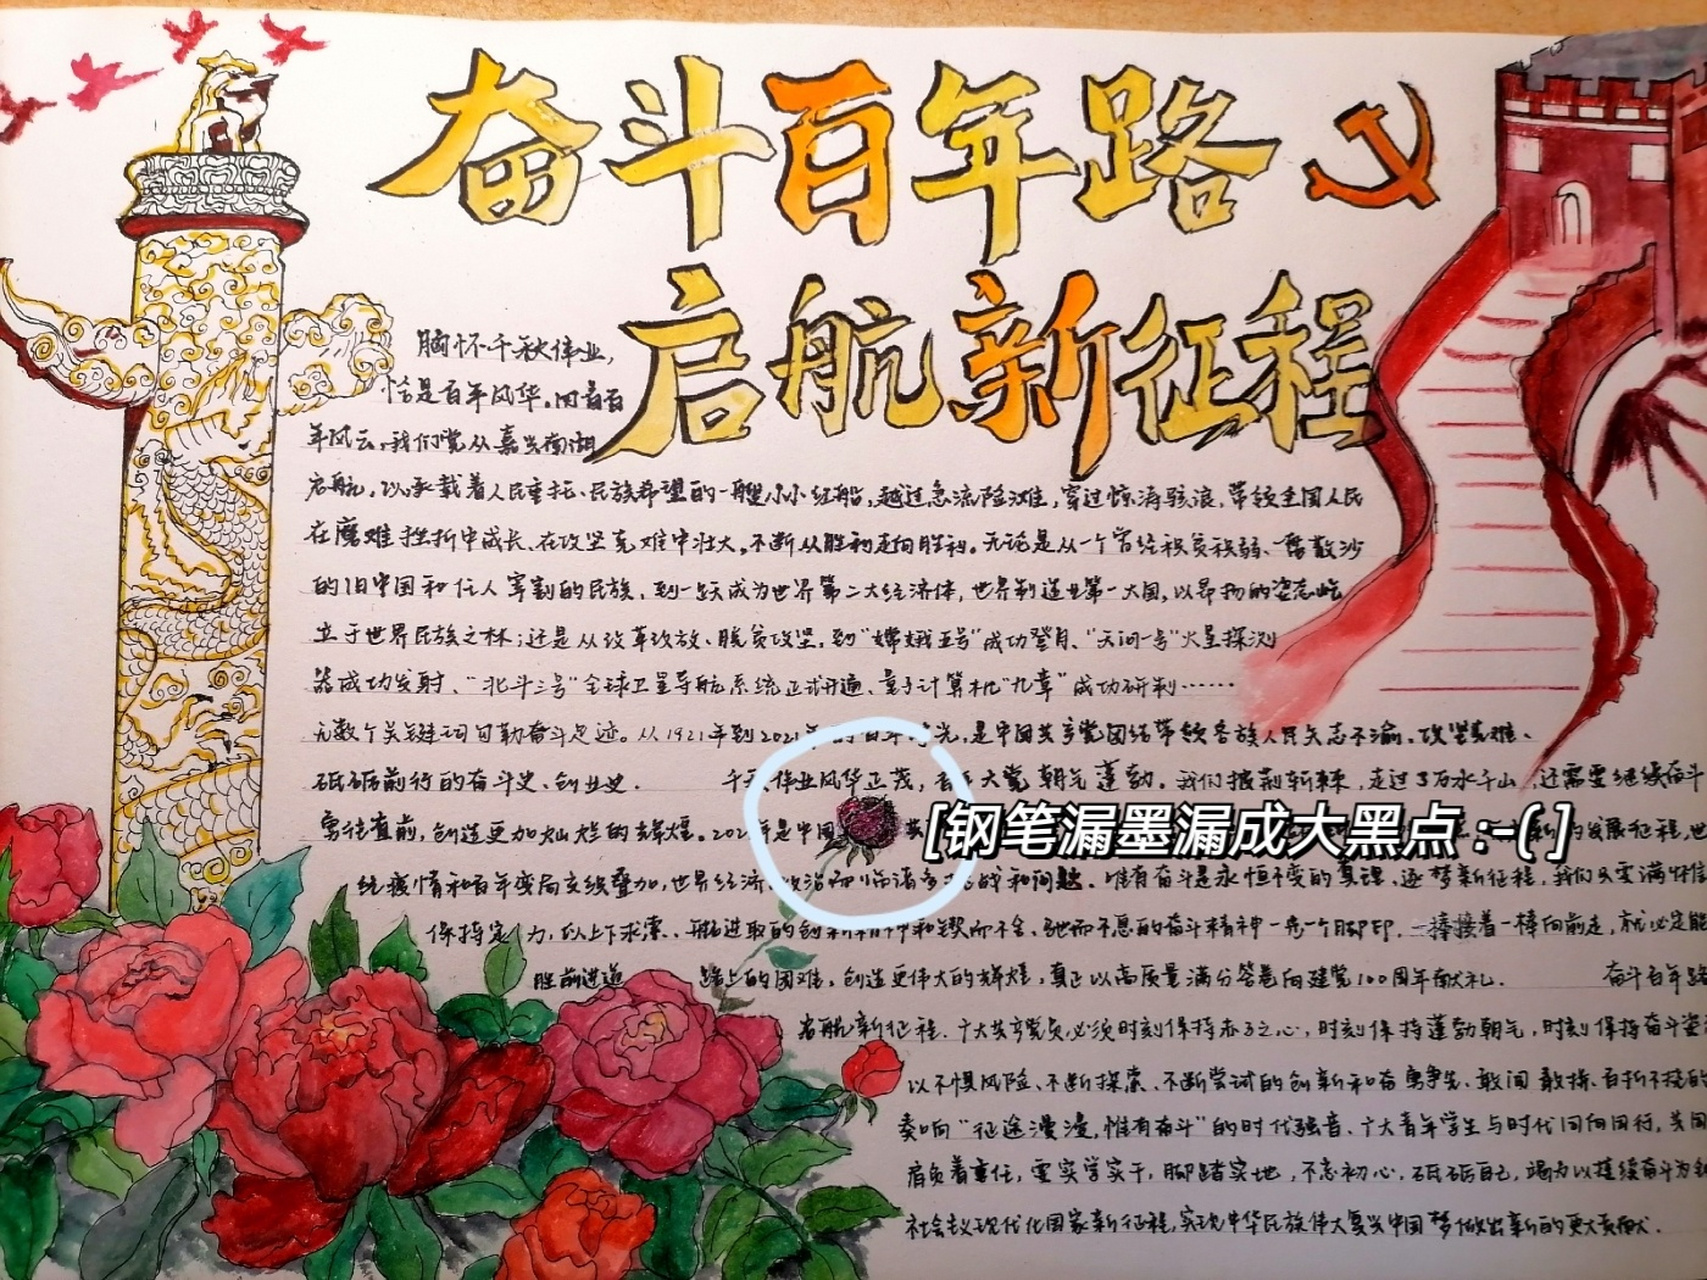 奋斗百年路
启航新征程
胸怀千秋伟业，
恰是百年风华，回首百
年风云，我们党从嘉兴南湖
启航，以承载着人民重托、民族希望的一艘小小红船，越过急流险滩，穿过惊涛骇浪，带领全国人民
在磨难挫折中成长、在攻坚克难中壮大，不断从胜利走向胜利。无论是从一个曾经积贫积弱、一盘散沙
的旧中国和任人宰割的民族，到一跃成为世界第二大经济体，世界制造业第一大国，以昂扬的姿态屹
立于世界民族之林；还是从改革改放、脱贫攻坚，到“嫦娥五号”成功登月、“天问一号”火星探测
器成功发射、“北斗三号”全球卫星导航系统正式开通、量子计算机“九章”成功研制……
无数个关键词勾勒奋斗足迹。从1921年到2021年的百年时光，是中国共产党团结带领各族人民矢志不渝、攻坚克难、
砥砺前行的奋斗史、创业史. 千秋伟业风华正茂，百年大党朝气蓬勃。我们披荆斩棘，走过了万水千山，还需要继续奋斗
勇往直前，创造更加灿烂的辉煌。2021年是中国共 的发展征程，世
[钢笔漏墨漏成大黑点 :-( ]
纪疫情和百年变局交织叠加，世界经济、政治面临诸多挑战和问题。唯有奋斗是永恒不变的真理、逐梦新征程，我们只要满怀信
保持定力，以上下求索、开拓进取的创新精神和锲而不舍、驰而不息的奋斗精神一步一个脚印，一棒接着一棒向前走，就必定能
胜前进道 路上的困难，创造更伟大的辉煌，真正以高质量满分答卷向建党100周年献礼. 奋斗百年路
启航新征程. 广大共产党员必须时刻保持赤子之心，时刻保持蓬勃朝气，时刻保持奋斗姿
以不惧风险、不断探索、不断尝试的创新和奋勇争先、敢闯敢拼、百折不挠的
奏响“征途漫漫，惟有奋斗”的时代强音、广大青年学生与时代同向同行，共同
肩负着重任，要实学实干，脚踏实地，不忘初心，砥砺自己，竭力以持续奋斗为
社会主义现代化国家新征程，实现中华民族伟大复兴中国梦做出新的更大贡献.